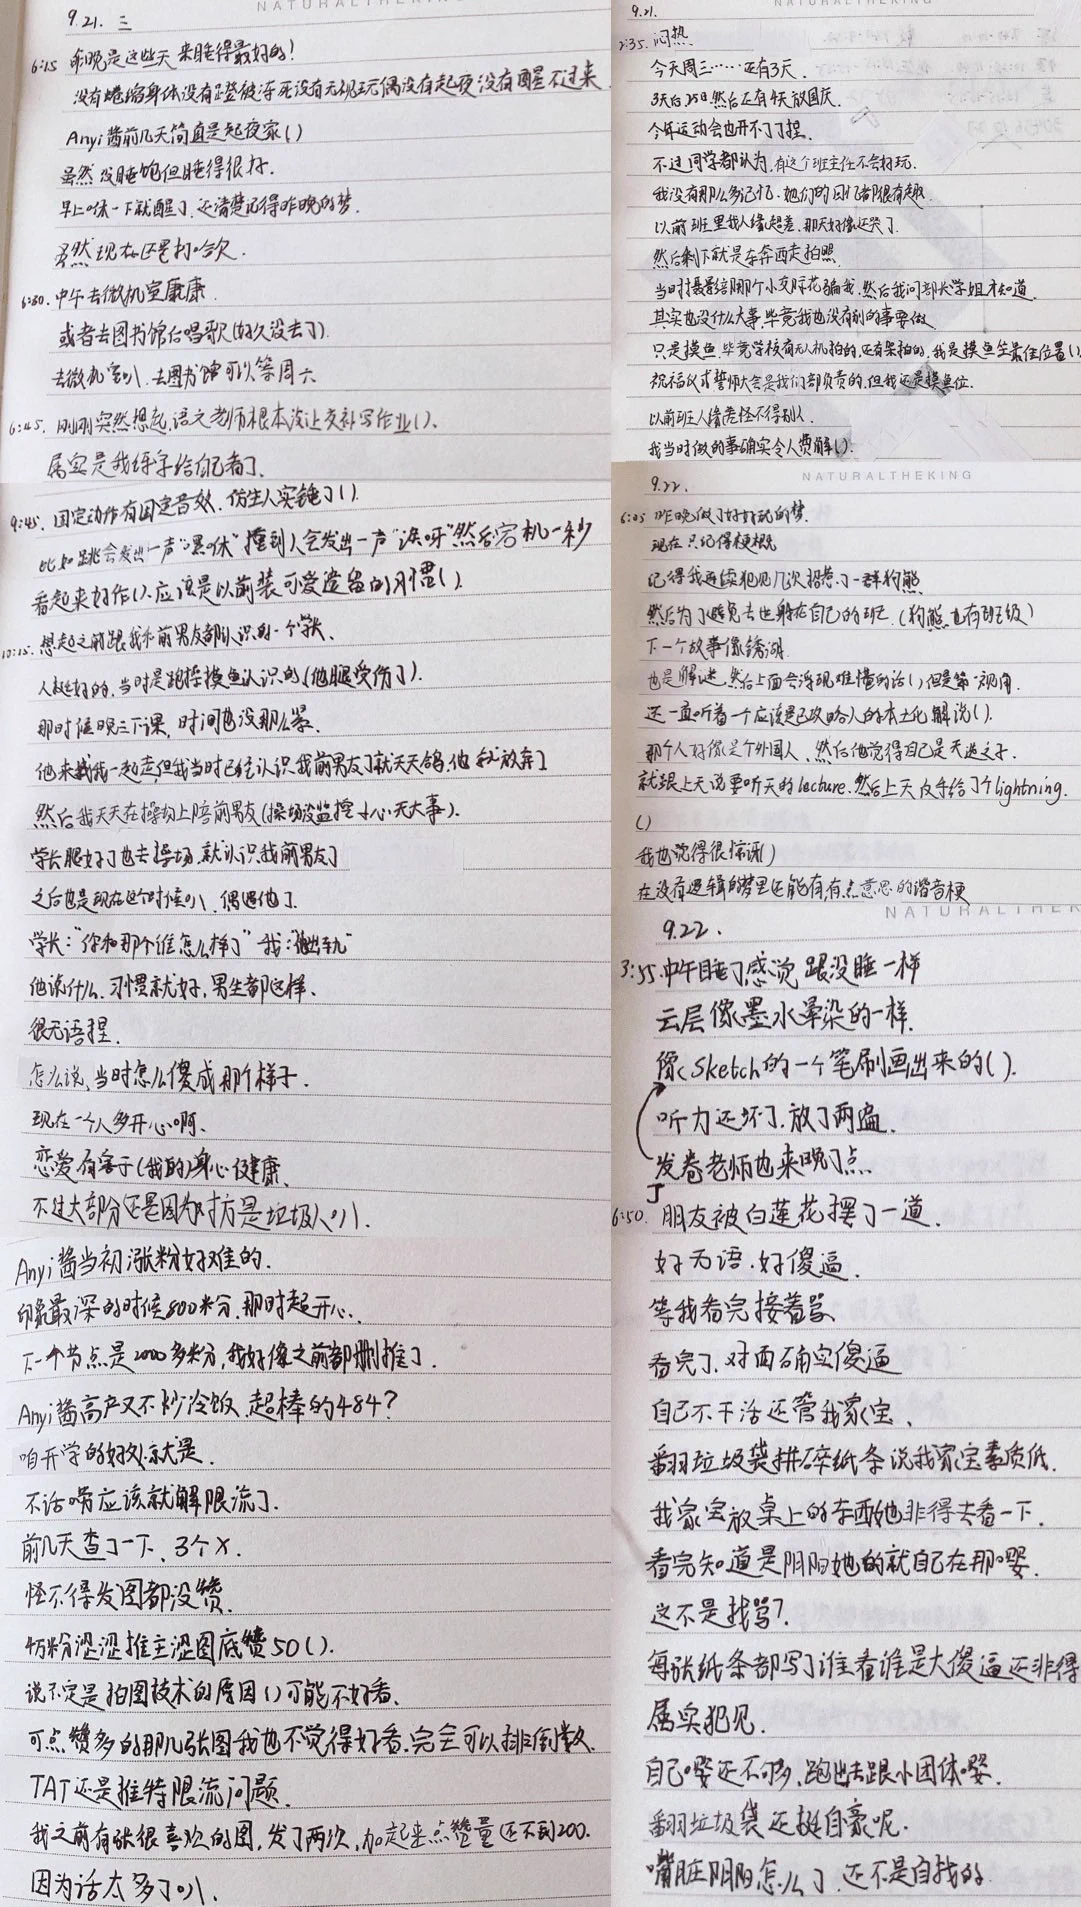 NATURALTHEKING
9.21. 三
6:15 昨晚是这些天来睡得最好的！
没有蜷缩身体没有蹬被冻死没有无视玩偶没有起夜没有醒不过来
Anyi酱前几天简直是起夜家()
虽然没睡饱但睡得很好.
早上咻一下就醒了.还清楚记得昨晚的梦.
虽然现在还是打哈欠.
6:30. 中午去微机室康康
或者去图书馆后唱歌(好久没去了).
去微机室叭.去图书馆可以等周六
6:45. 刚刚突然想起.语文老师根本没让交补写作业().
属实是我练字给自己看了.
9:45. 固定动作有固定音效.仿生人实锤了().
比如跳会发出一声“嘿咻”撞到人会发出一声“诶呀”然后宕机一秒
看起来好作().应该是以前装可爱遗留的习惯().
10:15. 想起之前跟我和前男友都认识的一个学长.
人挺好的,当时是跑操摸鱼认识的(他腿受伤了).
那时候晚三下课,时间也没那么紧.
他来找我一起走,但我当时已经认识我前男友了就天天鸽.他就放弃了
然后我天天在操场上陪前男友(操场没监控小心天大事).
学长腿好了也去操场.就认识我前男友了
之后也是现在这个时候叭、偶遇他了.
学长:“你和那个谁怎么样了” 我:“他出轨”
他说什么.习惯就好,男生都这样.
很无语捏.
怎么说、当时怎么傻成那个样子.
现在一个人多开心啊.
恋爱有害于(我的)身心健康.
不过大部分还是因为对方是垃圾人叭.
Anyi酱当初涨粉好难的.
印象最深的时候800米分.那时超开心.
下一个节点是2000多米分,我好像之前都删推了.
Anyi酱高产又不炒冷饭.超棒的484?
咱开学的好处就是.
不话唠应该就解限流了.
前几天查了一下、3个X.
怪不得发图都没赞.
4万粉涩涩推主涩图底赞50().
说不定是拍图技术的原因()可能不好看、
可点赞多的那几张图我也不觉得好看.完全可以排倒数.
TAT还是推特限流问题.
我之前有张很喜欢的图,发了两次,加起来点赞量还不到200.
因为话太多了叭.
NATURALTHEKING
9.21.
2:35. 闷热
今天周三……还有3天.
3天后25日然后还有4天放国庆.
今年运动会也开不了了捏.
不过同学都认为,有这个班主任不会好玩.
我没有那么多记忆.她们的回忆都很有趣.
以前班里我人缘超差.那天好像还哭了.
然后剩下就是东奔西走拍照.
当时摄影部那个小交际花骗我.然后我问部长学姐才知道.
其实也没什么大事.毕竟我也没有别的事要做
只是摸鱼.毕竟学校有无人机拍的.还有架拍的.我是摸鱼坐最佳位置()
祝福仪式誓师大会是我们部负责的.但我还是摸鱼位.
以前班人缘差怪不得别人.
我当时做的事确实令人费解().
NATURALTHEKING
9.22.
6:05 昨晚做了好好玩的梦.
现在只记得梗概
记得我连续犯贱几次招惹了一群狗熊
然后为了避免去也躲在自己的班.(狗熊也有班级)
下一个故事像锈湖.
也是解谜.然后上面会浮现难懂的话()但是第一视角.
还一直听着一个应该是已攻略人的本土化解说().
那个人好像是个外国人、然后他觉得自己是天选之子.
就跟上天说要听天的lecture.然后上天反手给了个lightning.
()
我也觉得很惊讶()
在没有逻辑的梦里还能有,有点意思的谐音梗
NATURALTHEK
9.22.
3:55 中午睡了感觉跟没睡一样
云层像墨水晕染的一样.
像(Sketch的一个笔刷画出来的().
听力还坏了.放了两遍.
发卷老师也来晚了点.
6:50. 朋友被白莲花摆了一道.
好无语.好傻逼.
等我看完接着骂
看完了.对面确实傻逼
自己不干活还管我家宝.
翻垃圾袋拼碎纸条说我家宝素质低.
我家宝放桌上的东西她非得去看一下.
看完知道是阴阳她的就自己在那嘤.
这不是找骂?
每张纸条都写了谁看谁是大傻逼还非得
属实犯贱.
自己嘤还不够.跑出去跟小团体嘤.
翻垃圾袋还挺自豪呢.
嘴脏阴阳怎么了.还不是自找的.